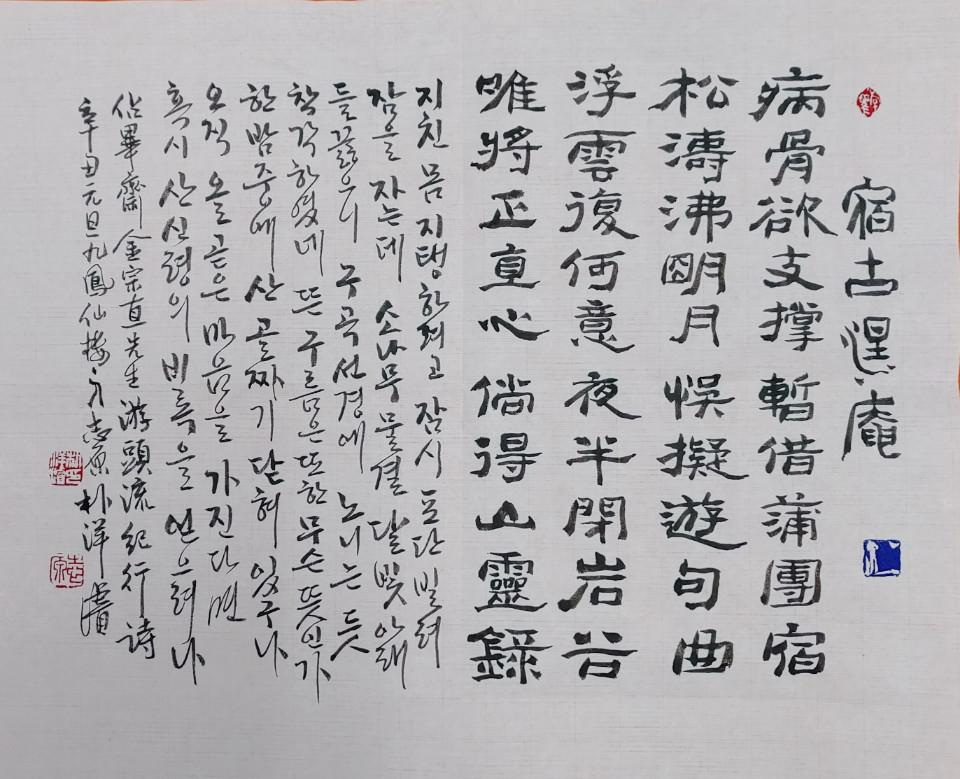 宿古涅庵
病骨欲支撑暫借蒲團宿
松濤沸明月悞擬遊句曲
浮雲復何意夜半閉岩谷
唯將正直心倘得山靈錄
지친 몸 지탱하려고 잠시 포단 빌려
잠을 자는데 소나무 물결 달빛 아래
들끓으니 구곡선경에 노니는 듯
착각하였네 뜬 구름은 또한 무슨 뜻인가
한밤중에 산골짜기 닫혀 있구나
오직 올곧은 마음을 가진다면
혹시 산신령의 비록을 얻으려나
佔畢齋金宗直先生游頭流紀行詩
辛丑元旦九鳳仙樓 朴洋